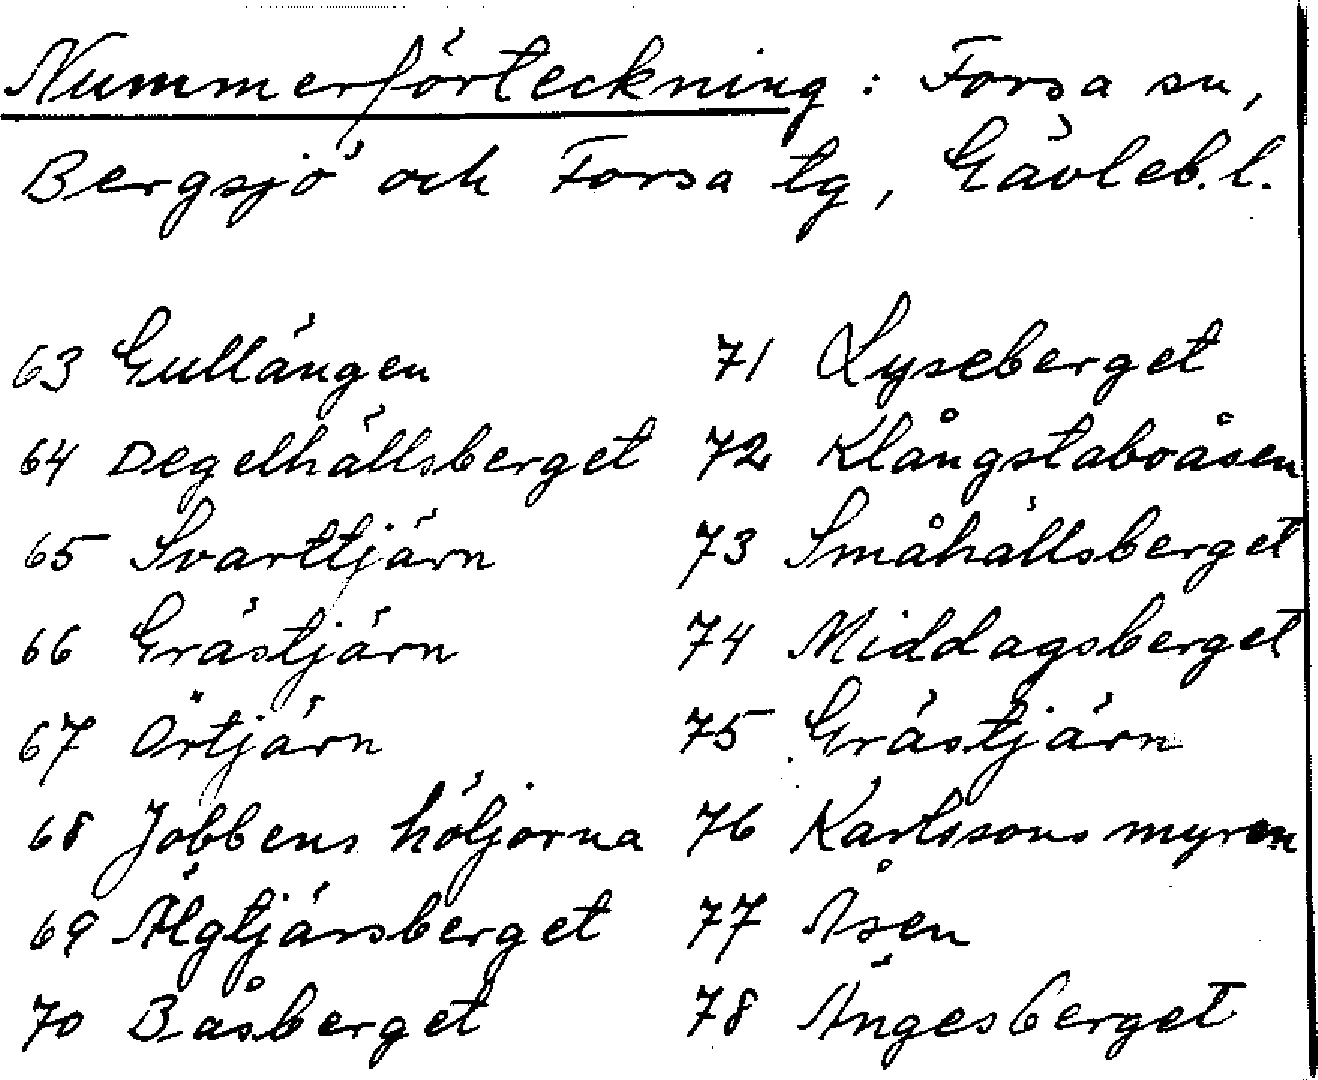 Nummerförteckning: Forsa sn,
Bergsjö och Forsa tg, Gävleb.l.
63 Gullängen
64 Degelhällsberget
65 Svarttjärn
66 Grästjärn
67 Örtjärn
68 Jobbens höljorna
69 Älgtjärsberget
70 Båsberget
71 Lyseberget
72 Klångstaboåsen
73 Småhällsberget
74 Middagsberget
75 Grästjärn
76 Karlssons myren
77 Åsen
78 Ängesberget